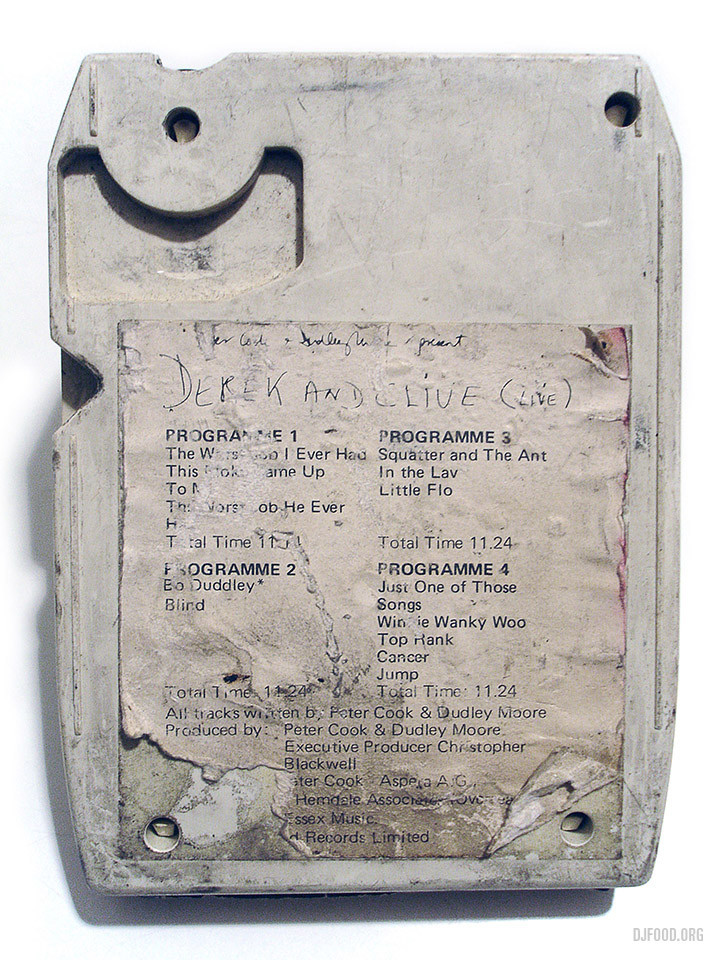 present
DEREK AND CLIVE (LIVE)
PROGRAMME 1
The Worst Job I Ever Had
This Bloke Came Up
To
The Worst Job He Ever
H
Total Time 11.24
PROGRAMME 2
Bo Duddley*
Blind
Total Time: 11.24
PROGRAMME 3
Squatter and The Ant
In the Lav
Little Flo
Total Time 11.24
PROGRAMME 4
Just One of Those
Songs
Winnie Wanky Woo
Top Rank
Cancer
Jump
Total Time: 11.24
All tracks written by: Peter Cook & Dudley Moore
Produced by: Peter Cook & Dudley Moore.
Executive Producer Christopher
Blackwell
Peter Cook Aspera A.G.,
Hemdale Associates
Essex Music.
d Records Limited
DJFOOD.ORG